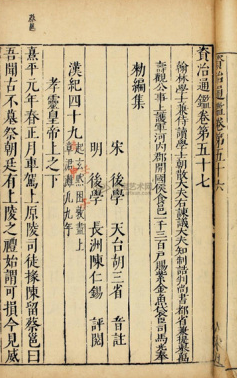 資治通鑑卷第五十七
翰林學士兼侍讀學士朝散大夫右諫議大夫知制誥判尚書都省兼提舉萬
壽觀公事上護軍河內郡開國侯食邑一千三百戶賜紫金魚袋臣司馬光奉
勑編集
宋 後學 天台胡三省 音註
明 後學 長洲陳仁錫 評閱
漢紀四十九
孝靈皇帝上之下
熹平元年春正月車駕上原陵司徒掾陳留蔡邕曰
吾聞古不墓祭朝廷有上陵之禮始謂可損今見威
蔡邕